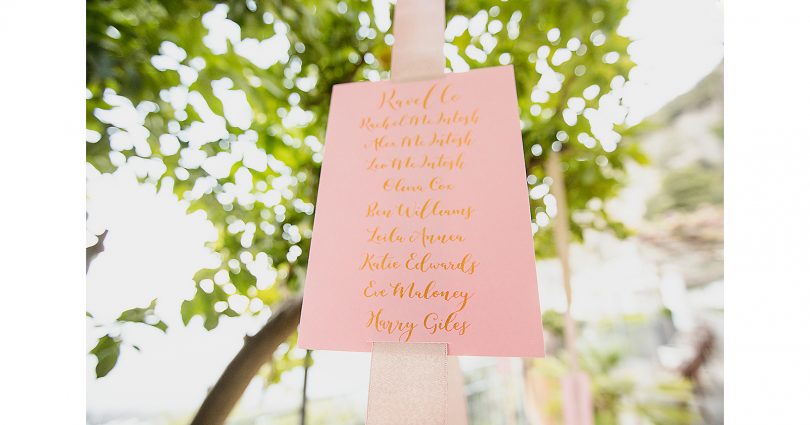 Ravello
Rachel McIntosh
Alex McIntosh
Leo McIntosh
Olivia Coe
Ben Williams
Leila Annea
Katie Edwards
Eve Maloney
Harry Giles